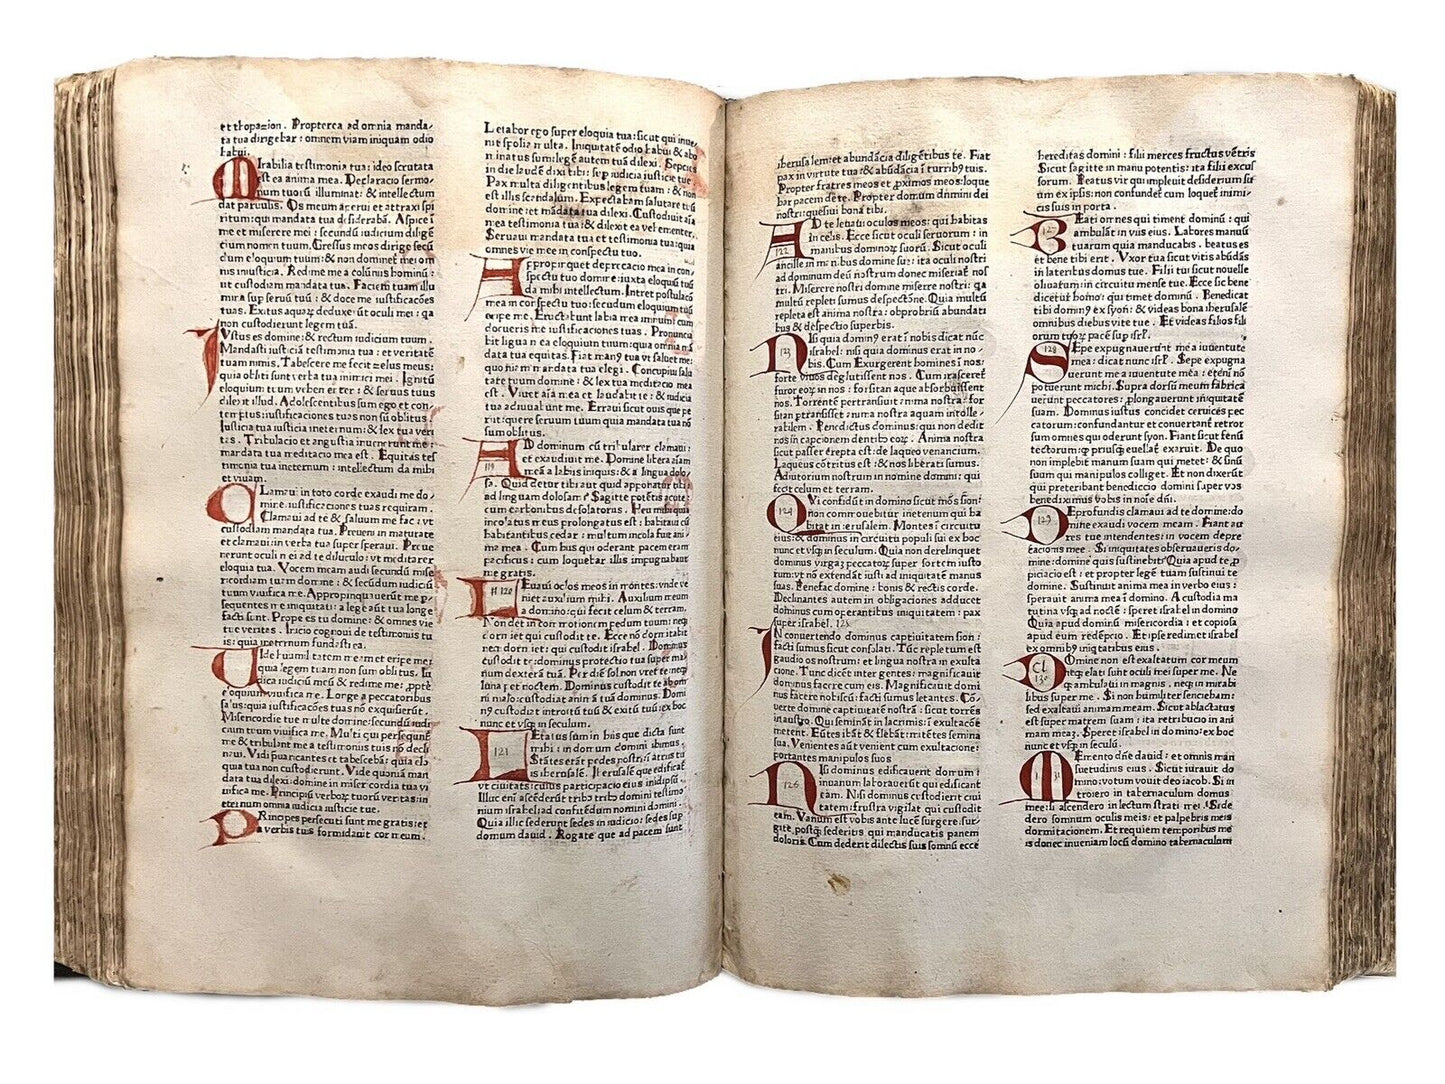 et thopazion. Propterea ad omnia manda/
ta tua dirigebar: omnem viam iniquam odio
habui.
MIrabilia testimonia tua: ideo scrutata
est ea anima mea. Declaracio sermo/
num tuorū illuminat: & intellectum
dat paruulis. Os meum aperui et attraxi spi
ritum: quia mandata tua desiderabā. Aspice ī
me et miserere mei: secundū iudicium diligē
cium nomen tuum. Gressus meos dirige secū
dum eloquium tuum: & non dominet mei om
nis iniusticia. Redime me a calūniis hominū:
ut custodiam mandata tua. Faciem tuam illu
mina sup seruū tuū: & doce me iustificacōes
tuas. Exitus aquaꝝ deduxerūt oculi mei: qa
non custodierunt legem tuā.
IVstus es domine: & rectum iudicium tuum.
Mandasti iusticiā testimonia tua: et veritatē
tuam nimis. Tabescere me fecit zelus meus:
quia obliti sunt verba tua inimici mei. Ignitū
eloquium tuum vehementer: & seruus tuus
dilexit illud. Adolescentulus sum ego et con/
temptus: iustificaciones tuas non sū oblitus.
Iusticia tua iusticia ineternum: & lex tua veri
tas. Tribulacio et angustia inuenerunt me:
mandata tua meditacio mea est. Equitas tes
timonia tua ineternum: intellectum da mihi
et viuam.
CLamaui in toto corde exaudi me do/
mine: iustificaciones tuas requiram.
Clamaui ad te & saluum me fac: vt
custodiam mandata tua. Preueni in maturitate
et clamaui: in verba tua super speraui. Preue
nerunt oculi mei ad te diluculo: vt meditarer
eloquia tua. Vocem meam audi secundū mise
ricordiam tuam domine: & secūdum iudiciū
tuum viuifica me. Appropinquauerūt me p/
sequentes me iniquitati: a lege aūt tua longe
facti sunt. Prope es tu domine: & omnes vie
tue veritas. Inicio cognoui de testimoniis tu
is: quia ineternum fundasti ea.
VIde humilitatem meam et eripe me:
quia legem tuam non sum oblitus. Iu
dica iudiciū meū & redime me: ppter
eloquium viuifica me. Longe a peccatoribus
salus: quia iustificacōes tuas nō exquisierūt.
Misericordie tue multe domine: secundū iudi
cium tuum viuifica me. Multi qui persequunt
me & tribulant me: a testimoniis tuis nō decli
naui. Vidi preuaricantes et tabescebā: quia elo
quia tua non custodierunt. Vide quoniā man
data tua dilexi: domine in misericordia tua vi
uifica me. Principiū verboꝝ tuorū veritas: in
eternum omnia iudicia iusticie tue.
PRincipes persecuti sunt me gratis: et
a verbis tuis formidauit cor meum.
Letabor ego super eloquia tua: sicut qui inue/
nit spolia multa. Iniquitatē odio habui & abo
minatus sum: legē autem tuā dilexi. Sepcies
in die laudē dixi tibi: sup iudicia iusticie tue
Pax multa diligentibus legem tuam: & non
est illis scandalum. Expectabam salutare tuū
domine: et mādata tua dilexi. Custodiuit aīa
mea testimonia tua: & dilexit ea vehementer.
Seruaui mandata tua et testimonia tua: quia
omnes vie mee in conspectu tuo.
APpropinquet deprecacio mea in con/
spectu tuo domine: iuxta eloquiū tuū
da mihi intellectum. Intret postulacō
mea in conspectu tuo: secundum eloquium tuū
eripe me. Eructabunt labia mea imnum: cum
docueris me iustificaciones tuas. Pronuncia
bit lingua mea eloquium tuum: quia omnia mā
data tua equitas. Fiat manꝯ tua vt saluet me:
quoniam mandata tua elegi. Concupiui salu
tare tuum domine: & lex tua meditacio mea
est. Viuet aīa mea et laudabit te: & iudicia
tua adiuuabunt me. Erraui sicut ouis que pe
riit: quere seruum tuum quia mandata tua nō
sum oblitus.
AD dominum cū tribularer clamaui:
119
et exaudiuit me. Domine libera aīam
meā a labiis iniquis: & a lingua dolo/
sa. Quid detur tibi aut quid apponatur tibi
ad linguam dolosam? Sagitte potētis acute
cum carbonibus desolatoriis. Heu mihi quia
incolatus meus prolongatus est: habitaui cū
habitantibus cedar: multum incola fuit ani/
ma mea. Cum hiis qui oderant pacem eram
pacificus: cum loquebar illis impugnabant
me gratis.
LEuaui oclos meos in montes: vnde ve
120
niet auxilium mihi. Auxilium meum
a domino: qui fecit celum & terram.
Non det in commotionem pedum tuum: neqꝫ
dormiet qui custodit te. Ecce nō dormitabit
neqꝫ dormiet: qui custodit israhel. Dominus
custodit te: dominus protectio tua super ma/
num dexterā tuā. Per diē sol non vret te: neqꝫ
luna per noctem. Dominus custodit te ab om
ni malo: custodiat animā tuā dominus. Domi
nꝯ custodit introitū tuū & exitū tuū: ex hoc
nunc et vsqꝫ in seculum.
LEtatus sum in hiis que dicta sunt
121
mihi: in domum domini ibimus.
Stātes erāt pedes nostri: ī atriis tu
is iherusalē. Iherusalē que edificat
vt ciuitas: cuius participacio eius inidipsū.
Illuc eni ascēderūt tribꝯ tribꝯ domini testimo
nium israhel: ad confitēdum nomini domini.
Quia illic sederunt sedes in iudicio: sedes sup
domum dauid. Rogate que ad pacem sunt
iherusalem: et abundācia diligētibus te. Fiat
pax in virtute tua: & abūdācia ī turribꝯ tuis.
Propter fratres meos et ꝓximos meos: loque
bar pacem de te. Propter domum domini dei
nostri: quesiui bona tibi.
AD te leuaui oculos meos: qui habitas
122
in celis. Ecce sicut oculi seruorum: in
manibus dominoꝝ suorū. Sicut oculi
ancille in manibus domine sue: ita oculi nostri
ad dominum deū nostrum donec misereat nos
tri. Miserere nostri domine miserere nostri: qa
multū repleti sumus despectōne. Quia multū
repleta est anima nostra: obprobriū abundan
tibus & despectio superbis.
NIsi quia dominꝯ erat ī nobis dicat nūc
123
israhel: nisi quia dominus erat in no/
bis. Cum Exurgerent homines ī nos:
forte viuos deglutissent nos. Cum irasceret
furor eoꝝ in nos: forsitan aqua absorbuissent
nos. Torrentē pertransiuit anima nostra: for
sitan ptransisset aīma nostra aquam intolle/
rabilem. Benedictus dominus: qui non dedit
nos in capcionem dentibꝯ eoꝝ. Anima nostra
sicut passer erepta est: de laqueo venancium.
Laqueus cōtritus est: & nos liberati sumus.
Adiutorium nostrum in nomine domini: qui
fecit celum et terram.
QVi confidūt in domino sicut mōs sion:
124
non commouebitur ineternum qui ha
bitat in iherusalem. Montes ī circuitu
eius: & dominus in circuitu populi sui ex hoc
nunc et vsqꝫ in seculum. Quia non derelinquet
dominus virgā peccatoꝝ super sortem iusto
rum: vt nō extendāt iusti ad iniquitatē manus
suas. Benefac domine: bonis & rectis corde.
Declinantes autem in obligaciones adducet
dominus cum operantibus iniquitatem: pax
super israhel. 125
IN conuertendo dominus captiuitatem sion:
facti sumus sicut consolati. Tūc repletum est
gaudio os nostrum: et lingua nostra in exulta
cione. Tunc dicent inter gentes: magnificauit
dominus facere cum eis. Magnificauit domi
nus facere nobiscū: facti sumus letantes. Cō/
uerte domine captiuitatē nostrā: sicut torrēs
in austro. Qui semināt in lacrimis: ī exultacōe
metent. Eūtes ibāt & flebāt: mittētes semina
sua. Venientes aūt venient cum exultacione:
portantes manipulos suos
NIsi dominus edificauerit domum:
126
inuanum laborauerūt qui edificant
eam. Nisi dominus custodierit ciui
tatem: frustra vigilat qui custodit
eam. Vanum est vobis ante lucē surgere: sur
gite postqꝫ sederitis qui manducatis panem
doloris. Cum dederit dilectis suis somnū ecce
hereditas domini: filii merces fructus vētris
Sicut sagitte in manu potentis: ita filii excus
sorum. Beatus vir qui impleuit desiderium su
um ex ipsis: non confundet cum loquet inimi/
cis suis in porta.
BEati omnes qui timent dominū: qui
127
ambulāt in viis eius. Labores manuū
tuarum quia manducabis. beatus es
et bene tibi erit. Vxor tua sicut vitis abūdās
in lateribus domus tue. Filii tui sicut nouelle
oliuarum: in circuitu mense tue. Ecce sic bene
dicētur homo: qui timet dominū. Benedicat
tibi dominꝯ ex syon: & videas bona iherusalem
omnibus diebus vite tue. Et videas filios fili
orum tuoꝝ: pacē sup isrl̄.
SEpe expugnauerūt me a iuuentute
128
mea: dicat nunc isrl̄. Sepe expugna
uerunt me a iuuentute mea: eteni nō
potuerunt michi. Supra dorsū meum fabrica
uerunt peccatores: ꝓlongauerunt iniquitatē
suam. Dominus iustus concidet ceruices pec
catorum: confundantur et conuertantē retror
sum omnes qui oderunt syon. Fiant sicut fenū
tectorum: qꝫ priusqꝫ euellat exaruit. De quo
non implebit manum suam qui metet: & sinū
suum qui manipulos colliget. Et non dixerūt
qui preteribant benediccio domini super vos
benediximus vobis in noīe dn̄i.
DEprofundis clamaui ad te domine: do
129
mine exaudi vocem meam. Fiant au
res tue intendentes: in vocem depre
cacionis mee. Si iniquitates obseruaueris do
mine: domine quis sustinebit? Quia apud te ꝓ
piciacio est: et propter legē tuam sustinui te
domine. Sustinuit anima mea in verbo eius:
sperauit anima mea ī domino. A custodia ma
tutina vsqꝫ ad noctē: speret israhel in domino
Quia apud dominū misericordia: et copiosa
apud eum redēpcio. Et ipse redimet israhel
ex omnibꝯ iniqitatibus eius.
DOmine non est exaltatum cor meum
Cl 130
neqꝫ elati sunt oculi mei super me. Ne
qꝫ ambulaui in magnis. neqꝫ in mirabi
libus super me. Si non humiliter senciebam:
sed exaltaui animam meam. Sicut ablactatus
est super matrem suam: ita retribucio in ani
mam meā. Speret israhel in domino: ex hoc
nunc et vsqꝫ in seculū
MEmento dn̄e dauid: et omnis man
131
suetudinis eius. Sicut iurauit do
mino: votum vouit deo iacob. Si in
troiero in tabernaculum domus
mee: si ascendero in lectum strati mei. Si de
dero somnum oculis meis: et palpebris meis
dormitacionem. Et requiem temporibus me
is donec inueniam locū domino tabernaculum